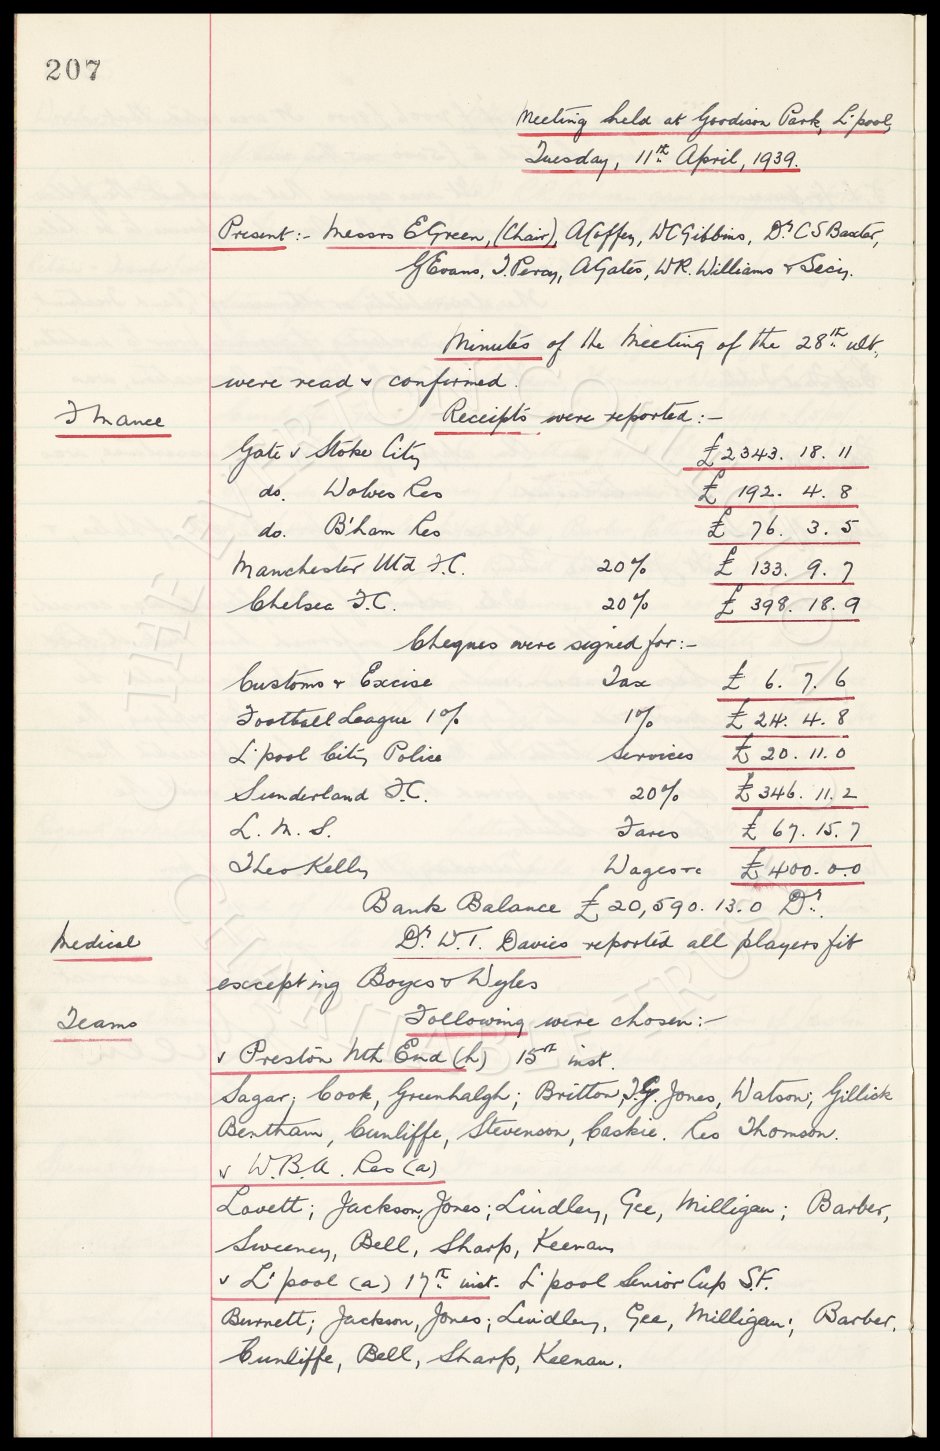 207
Meeting held at Goodison Park, L'pool,
Tuesday, 11th April, 1939.
Present:- Messrs E Green, (Chair), A Coffey, W C Gibbins, Dr C S Baxter,
G Evans, T. Percy, A Gates, W R. Williams & Secy.
Minutes of the Meeting of the 28th ult.,
were read & confirmed.
Finance
Receipts were reported:-
Gate v Stoke City £2343. 18. 11
do. Wolves Res £ 192. 4. 8
do. B'ham Res £ 76. 3. 5
Manchester Utd F.C. 20% £ 133. 9. 7
Chelsea F.C. 20% £ 398. 18. 9
Cheques were signed for:-
Customs & Excise Tax £ 6. 7. 6
Football League 1% 1% £ 24. 4. 8
L'pool City Police Services £ 20. 11. 0
Sunderland F.C. 20% £ 346. 11. 2
L. M. S. Fares £ 67. 15. 7
Theo Kelly Wages &c £ 400. 0. 0
Bank Balance £ 20,590. 13. 0 Dr.
Medical
Dr W. T. Davies reported all players fit
excepting Boyes & Wyles
Teams
Following were chosen:-
v Preston Nth End (h) 15th inst.
Sagar; Cook, Greenhalgh; Britton, T.G. Jones, Watson; Gillick
Bentham, Cunliffe, Stevenson, Caskie. Res Thomson.
v W.B.A. Res (a)
Lovett; Jackson, Jones; Lindley, Gee, Milligan; Barber,
Sweeney, Bell, Sharp, Keenan
v L'pool (a) 17th inst. L'pool Senior Cup S.F.
Burnett; Jackson, Jones; Lindley, Gee, Milligan; Barber,
Cunliffe, Bell, Sharp, Keenan.